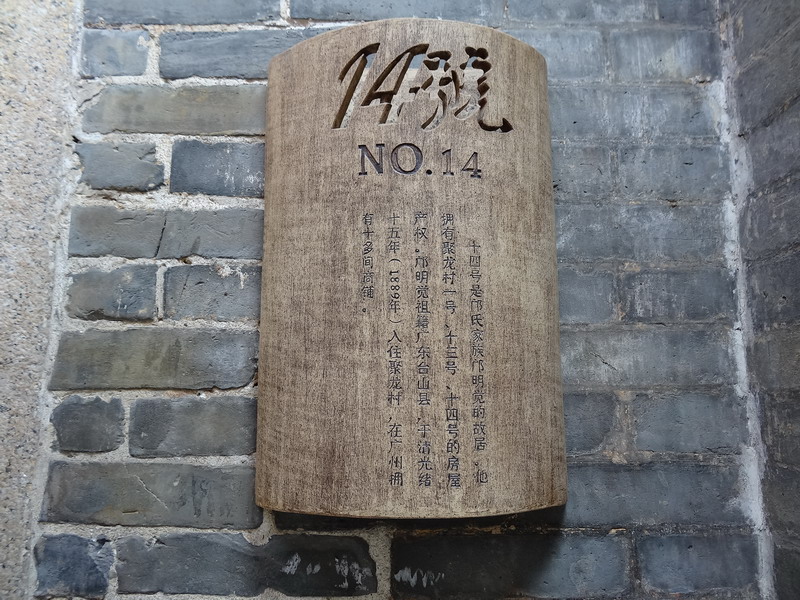 14號
NO.14
十四号是邝氏家族邝明觉的故居。他
拥有聚龙村一号、十三号、十四号的房屋
产权。邝明觉祖籍广东台山县，于清光绪
十五年（1889年）入住聚龙村，在广州拥
有十多间商铺。